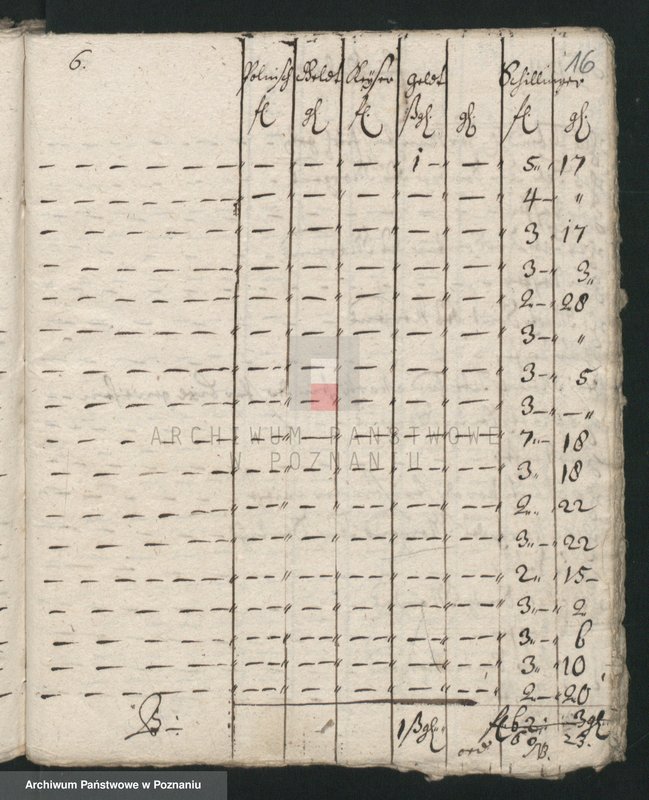 6. 16
Polnisch Geldt Keyser geldt Schillinger
fl gl fl ßgl gl fl gl
— — — — — " — " — " — " 1 — " — " 5 " 17
— — — — — " — " — " — " — " — " 4 — "
— — — — — " — " — " — " — " — " 3 " 17
— — — — — " — " — " — " — " — " 3 — 3 "
— — — — — " — " — " — " — " — " 2 — 28
— — — — — " — " — " — " — " — " 3 — "
— — — — — " — " — " — " — " — " 3 — 5
— — — — — " — " — " — " — " — " 3 — — "
— — — — — " — " — " — " — " — " 7 " — 18
— — — — — " — " — " — " — " — " 3 " 18
— — — — — " — " — " — " — " — " 2 " 22
— — — — — " — " — " — " — " — " 3 " — 22
— — — — — " — " — " — " — " — " 2 " 15 —
— — — — — " — " — " — " — " — " 3 " — 2
— — — — — " — " — " — " — " — " 3 " — 6
— — — — — " — " — " — " — " — " 3 " 10
— — — — — " — " — " — " — " — " 2 — 20
1 ßgl fl 62 3 gl
23.
ARCHIWUM PAŃSTWOWE
W POZNANIU
Archiwum Państwowe w Poznaniu